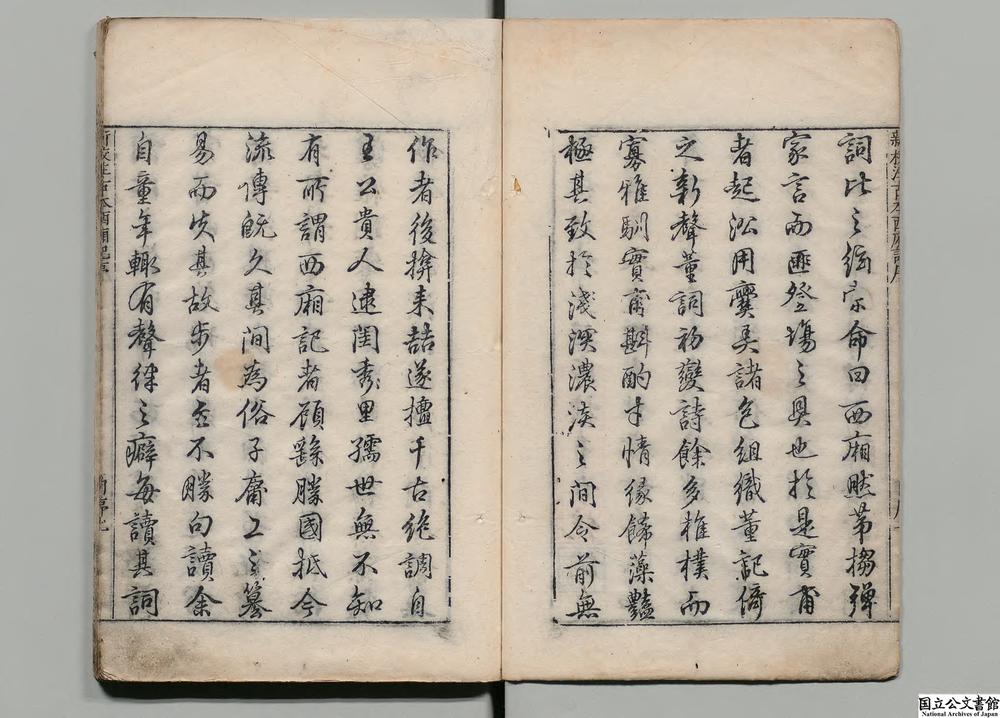 詞比之絃索命曰西廂然第搊彈
家言而匪登場之具也於是實甫
者起沿用爨弄諸色組織董記倚
之新聲董詞初變詩餘多椎樸而
寡雅馴實甫斟酌才情緣飾藻豔
極其致於淺深濃淡之間令前無
作者後揜來喆遂擅千古絕調自
王公貴人逮閨秀里孺世無不知
有所謂西廂記者顧繇勝國抵今
流傳既久其間為俗子庸工之篡
易而失其故步者至不勝句讀余
自童年輒有聲律之癖每讀其詞
新校注古本西廂記序
国立公文書館
National Archives of Japan